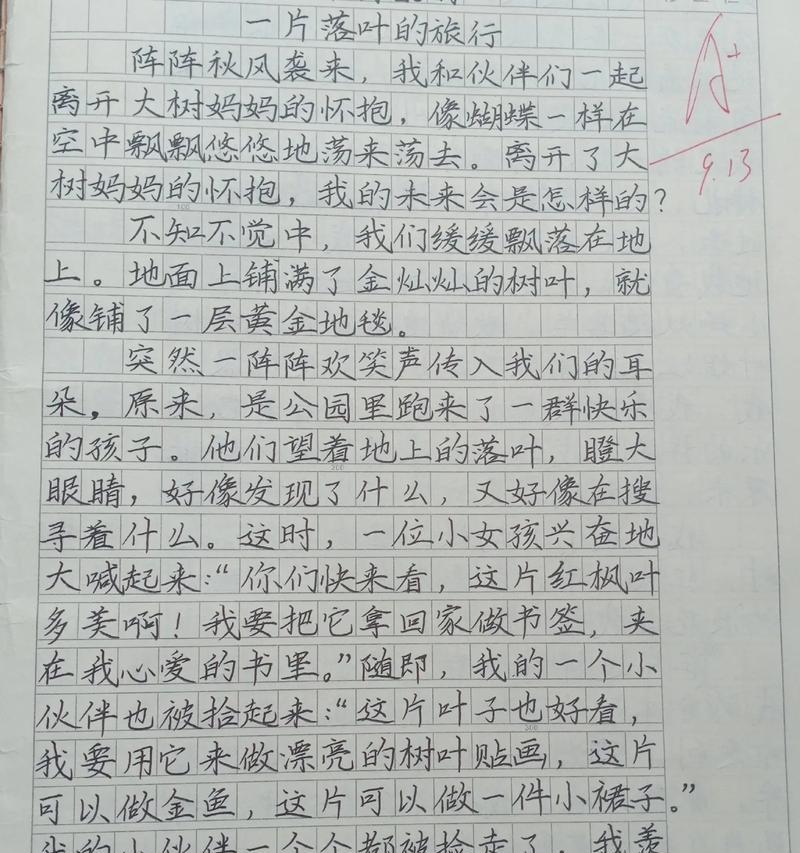 一片落叶的旅行
阵阵秋风袭来，我和伙伴们一起
离开大树妈妈的怀抱，像蝴蝶一样在
空中飘飘悠悠地荡来荡去。离开了大
树妈妈的怀抱，我的未来会是怎样的？
不知不觉中，我们缓缓飘落在地
上。地面上铺满了金灿灿的树叶，就
像铺了一层黄金地毯。
突然一阵阵欢笑声传入我们的耳
朵，原来，是公园里跑来了一群快乐
的孩子。他们望着地上的落叶，瞪大
眼睛，好像发现了什么，又好像在搜
寻着什么。这时，一位小女孩兴奋地
大喊起来：“你们快来看，这片红枫叶
多美啊！我要把它拿回家做书签，夹
在我心爱的书里。”随即，我的一个小
伙伴也被拾起来：“这片叶子也好看，
我要用它来做漂亮的树叶贴画，这片
可以做金鱼，这片可以做一件小裙子。”
我的小伙伴一个个都被捡走了，我羡
A+
9.13